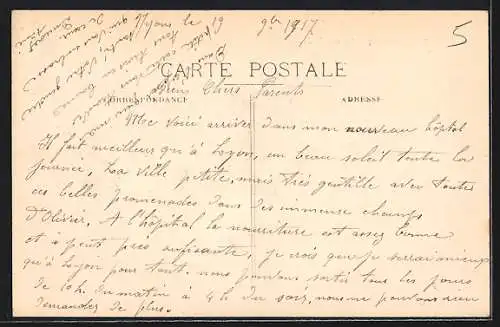 Nyons le 19 9bre 1917
5
CARTE POSTALE
CORRESPONDANCE
ADRESSE
Bien Chers Parents
Me voici arriver dans mon nouveau hôpital
Il fait meilleurs qu'à Lyon, un beau soleil toute la
journée, La ville petite, mais très gentille avec toutes
ces belles promenades dans des immense champs
d'Olivier. A l'hôpital la nourriture est assez bonne
et à peut près suffisante, je crois que je serrai mieux
qu'à Lyon pour tant. nous pouvons sortir tous les jours
de 10h. du matin à 4h du soir, nous ne pouvons rien
demander de plus.